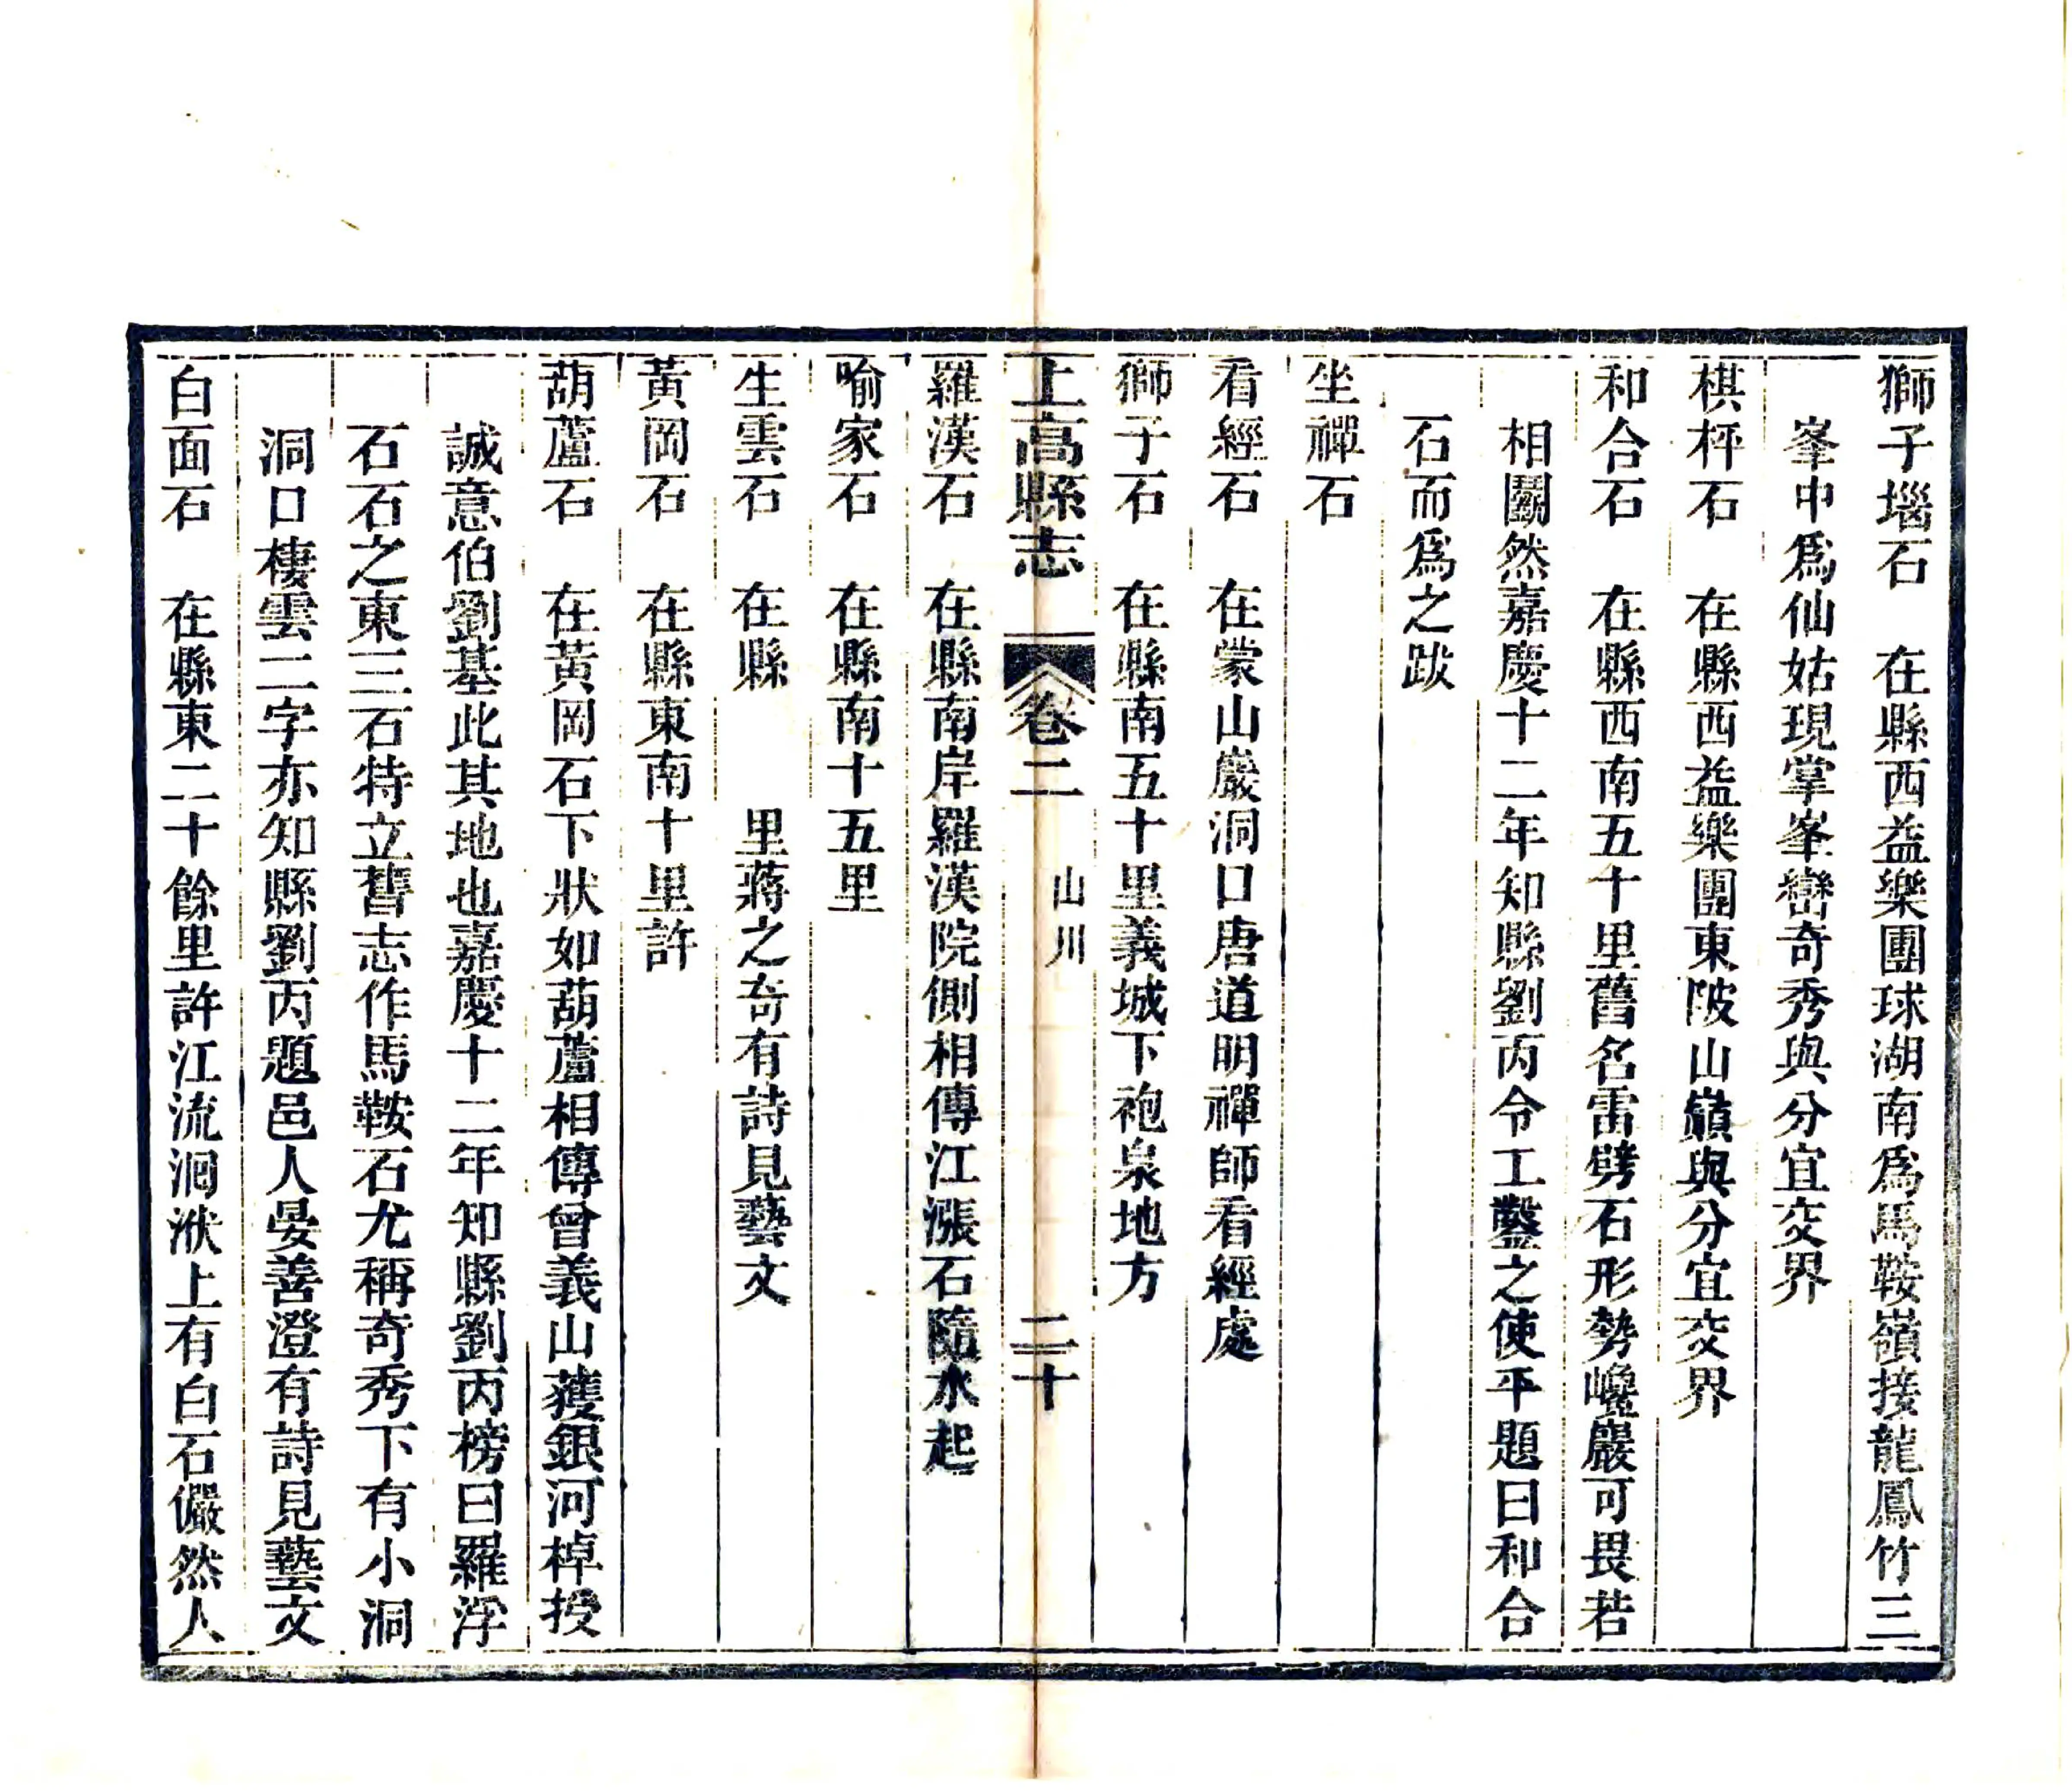 獅子堖石　在縣西益樂團球湖南爲馬鞍嶺接龍鳳竹三
峯中爲仙姑現掌峯巒奇秀與分宜交界
棋枰石　在縣西益樂團東陂山巔與分宜交界
和合石　在縣西南五十里舊名雷劈石形勢巉巖可畏若
相鬭然嘉慶十二年知縣劉丙令工鑿之使平題曰和合
石而爲之跋
坐禪石
看經石　在蒙山巖洞口唐道明禪師看經處
獅子石　在縣南五十里義城下袍泉地方
上高縣志　卷二　山川　二十
羅漢石　在縣南岸羅漢院側相傳江漲石隨水起
喻家石　在縣南十五里
生雲石　在縣　　里蔣之奇有詩見藝文
黃岡石　在縣東南十里許
葫蘆石　在黃岡石下狀如葫蘆相傳曾義山獲銀河棹授
誠意伯劉基此其地也嘉慶十二年知縣劉丙榜曰羅浮
石石之東三石特立舊志作馬鞍石尤稱奇秀下有小洞
洞口棲雲二字亦知縣劉丙題邑人晏善澄有詩見藝文
白面石　在縣東二十餘里許江流洄洑上有白石儼然人